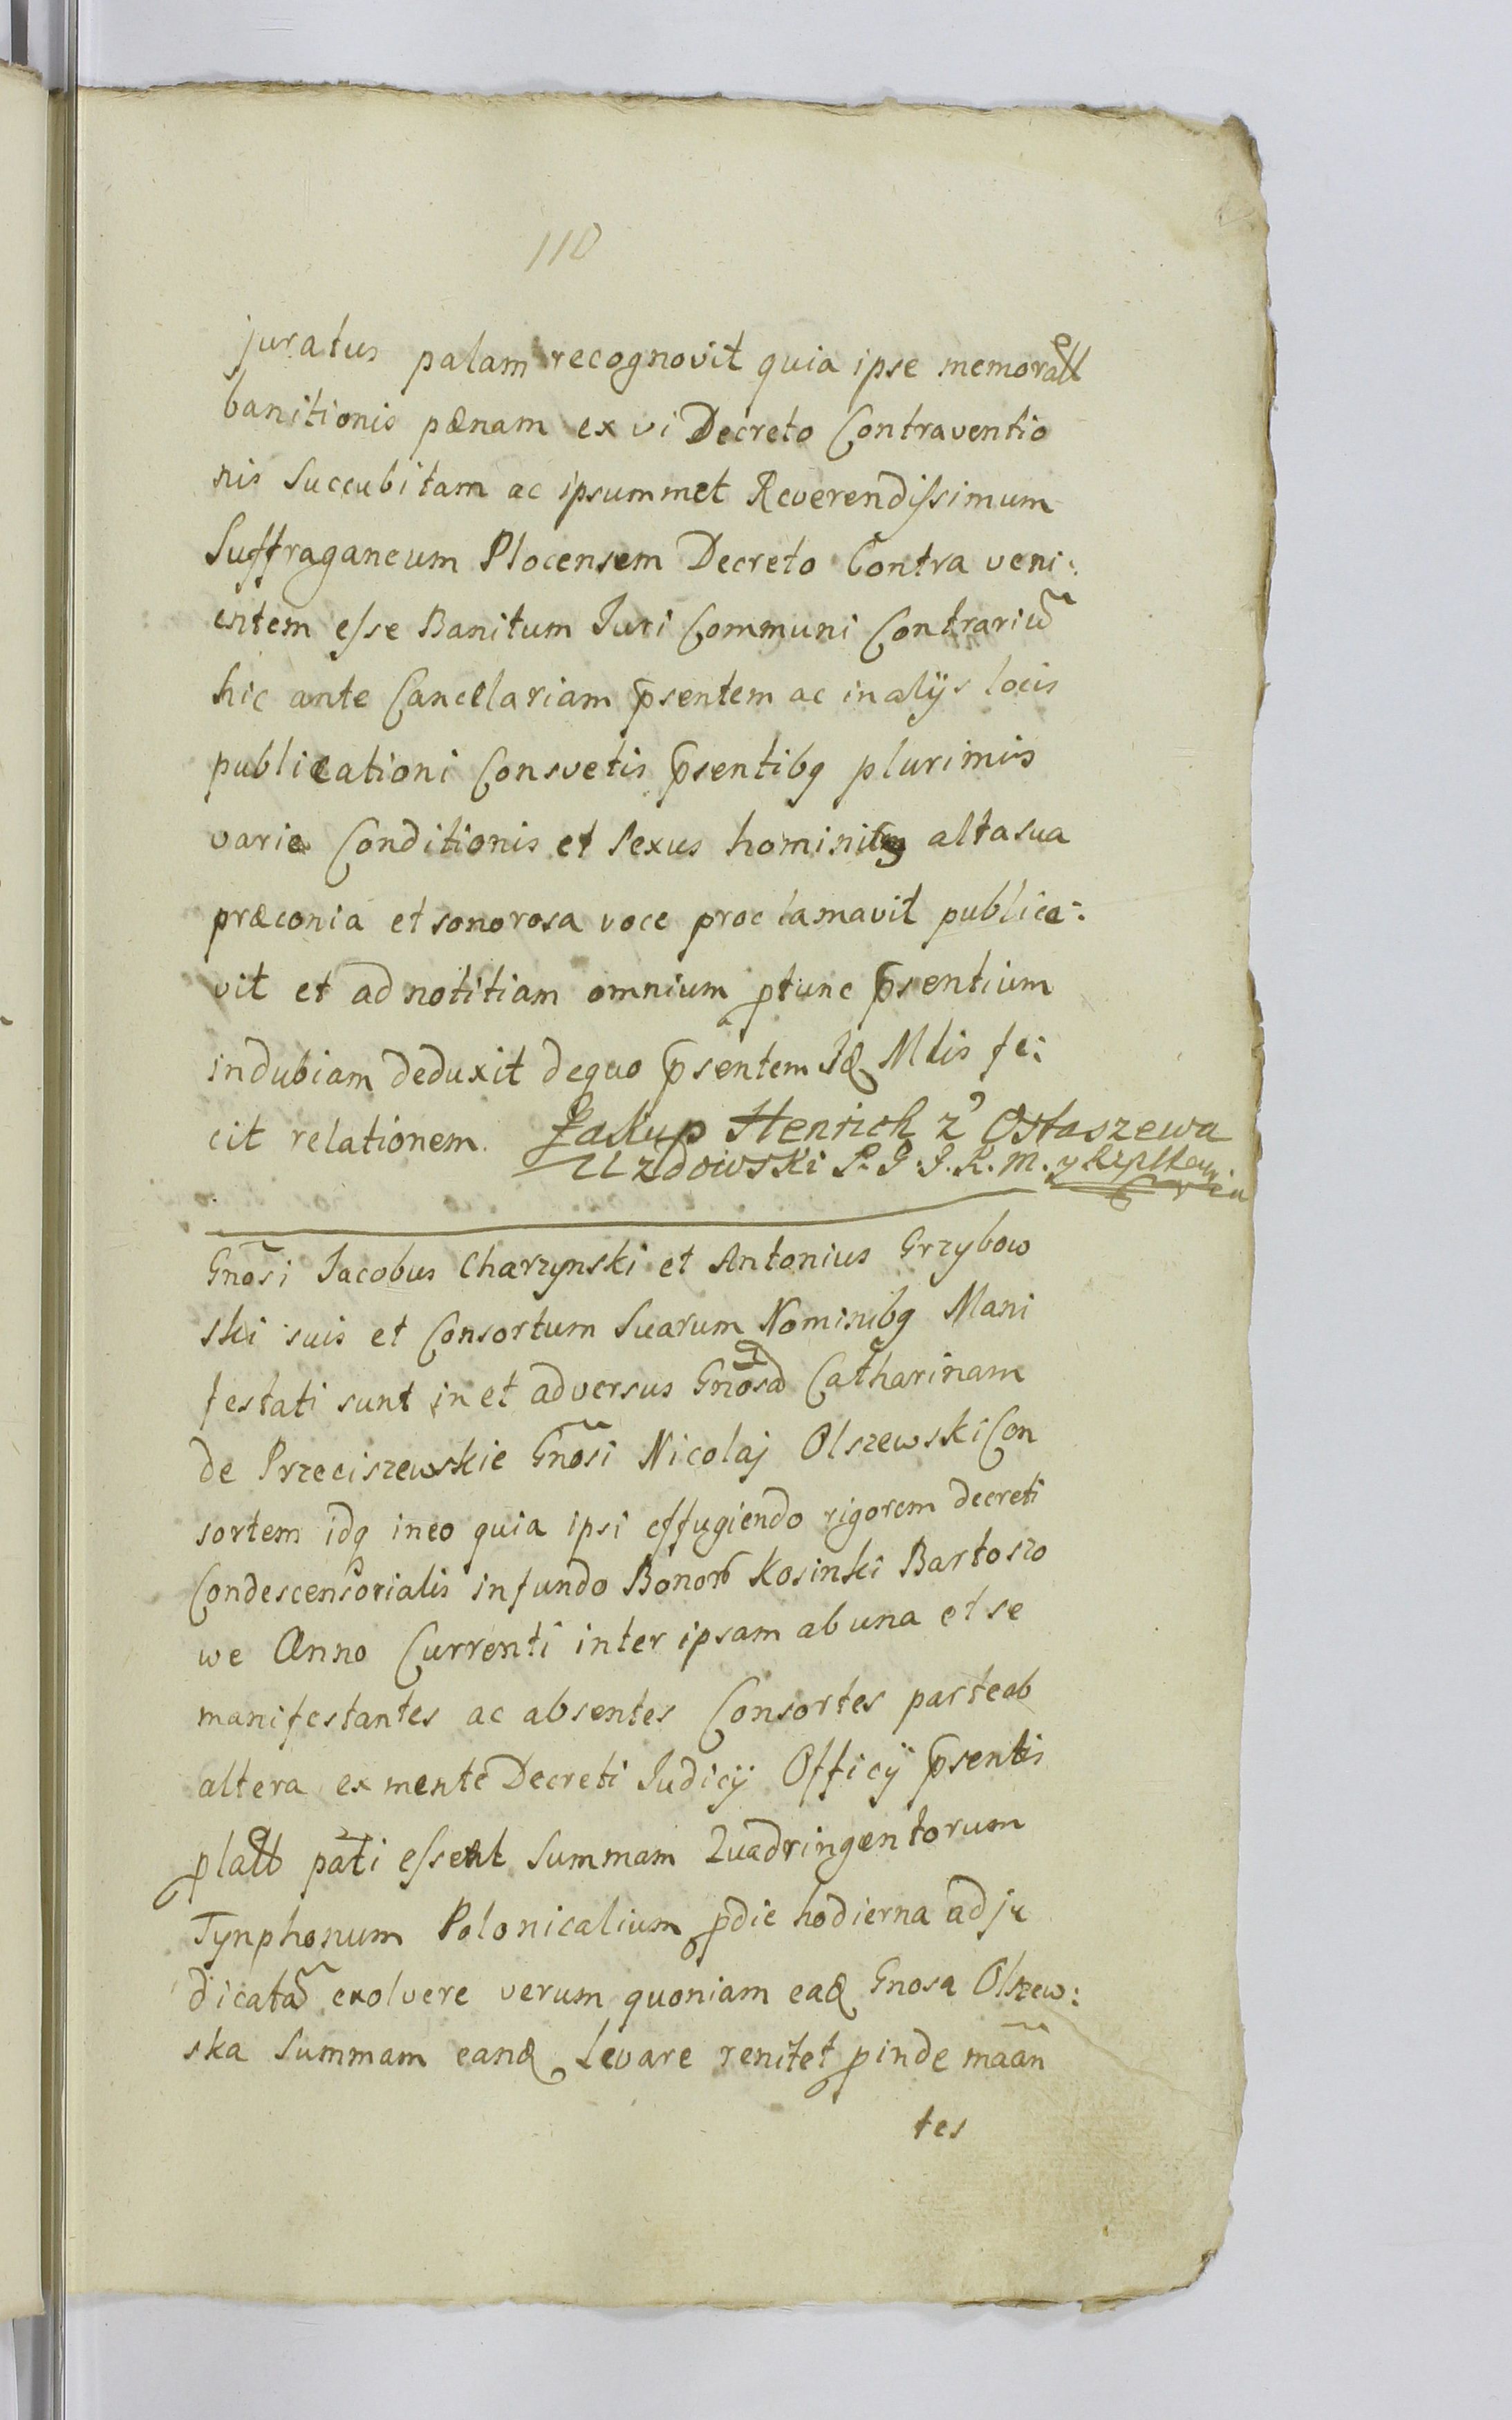 110
juratus palam recognovit quia ipse memorał
banitionis pænam ex vi Decreto Contraventio
nis Succubitam ac ipsummet Reverendissimum
Suffraganeum Plocensem Decreto Contra veni:
entem esse Banitum Iuri Communi Contrariu͂
hic ante Cancelariam p̄sentem ac in alÿs locis
publicationi Consvetis p̄sentibq plurimis
varie Conditionis et Sexus hominibq alta sua
præconia et sonorosa voce proclamavit publica:
vit et ad notitiam omnium ꝑtunc p̄sentium
indubiam deduxit dequo p̄sentem Id Mlis fe:
cit relationem. Jakup Henrich z Ostaszewa
Uzdowski P. G. J. K. M. y
Gno͂si Iacobus Charzynski et Antonius Grzybow
ski suis et Consortum Suarum Nominibq Mani
festati sunt in et adversus Gno͂sa͂ Catharinam
de Przeciszewskie Gno͂si Nicolaj Olszewski Con
sortem idq in eo quia ipsi effugiendo rigorem decreti
Condescensorialis in fundo Bonorũ Kosinski Bartoszo
we Anno Currenti inter ipsam ab una et se
manifestantes ac absentes Consortes parte ab
altera ex mente Decreti Iudicÿ Officÿ p̄sentis
ꝑlatł pa͂ti essent Summam Quadringentorum
Tynphonum Polonicalium ꝑ die hodierna adju
dicata͂ exolvere verum quoniam ead Gnosa Olszew:
ska Summam eand Levare renitet ꝑinde ma͂an
tes